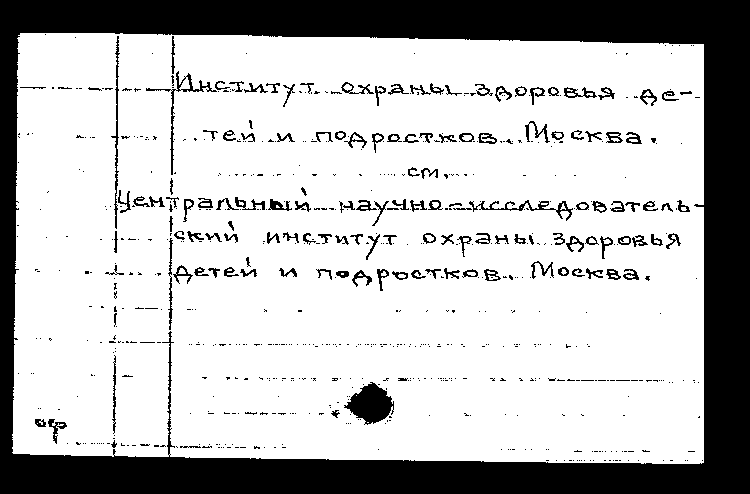 Институт охраны здоровья де-
тей и подростков. Москва.
см.
Центральный научно-исследователь-
ский институт охраны здоровья
детей и подростков. Москва.